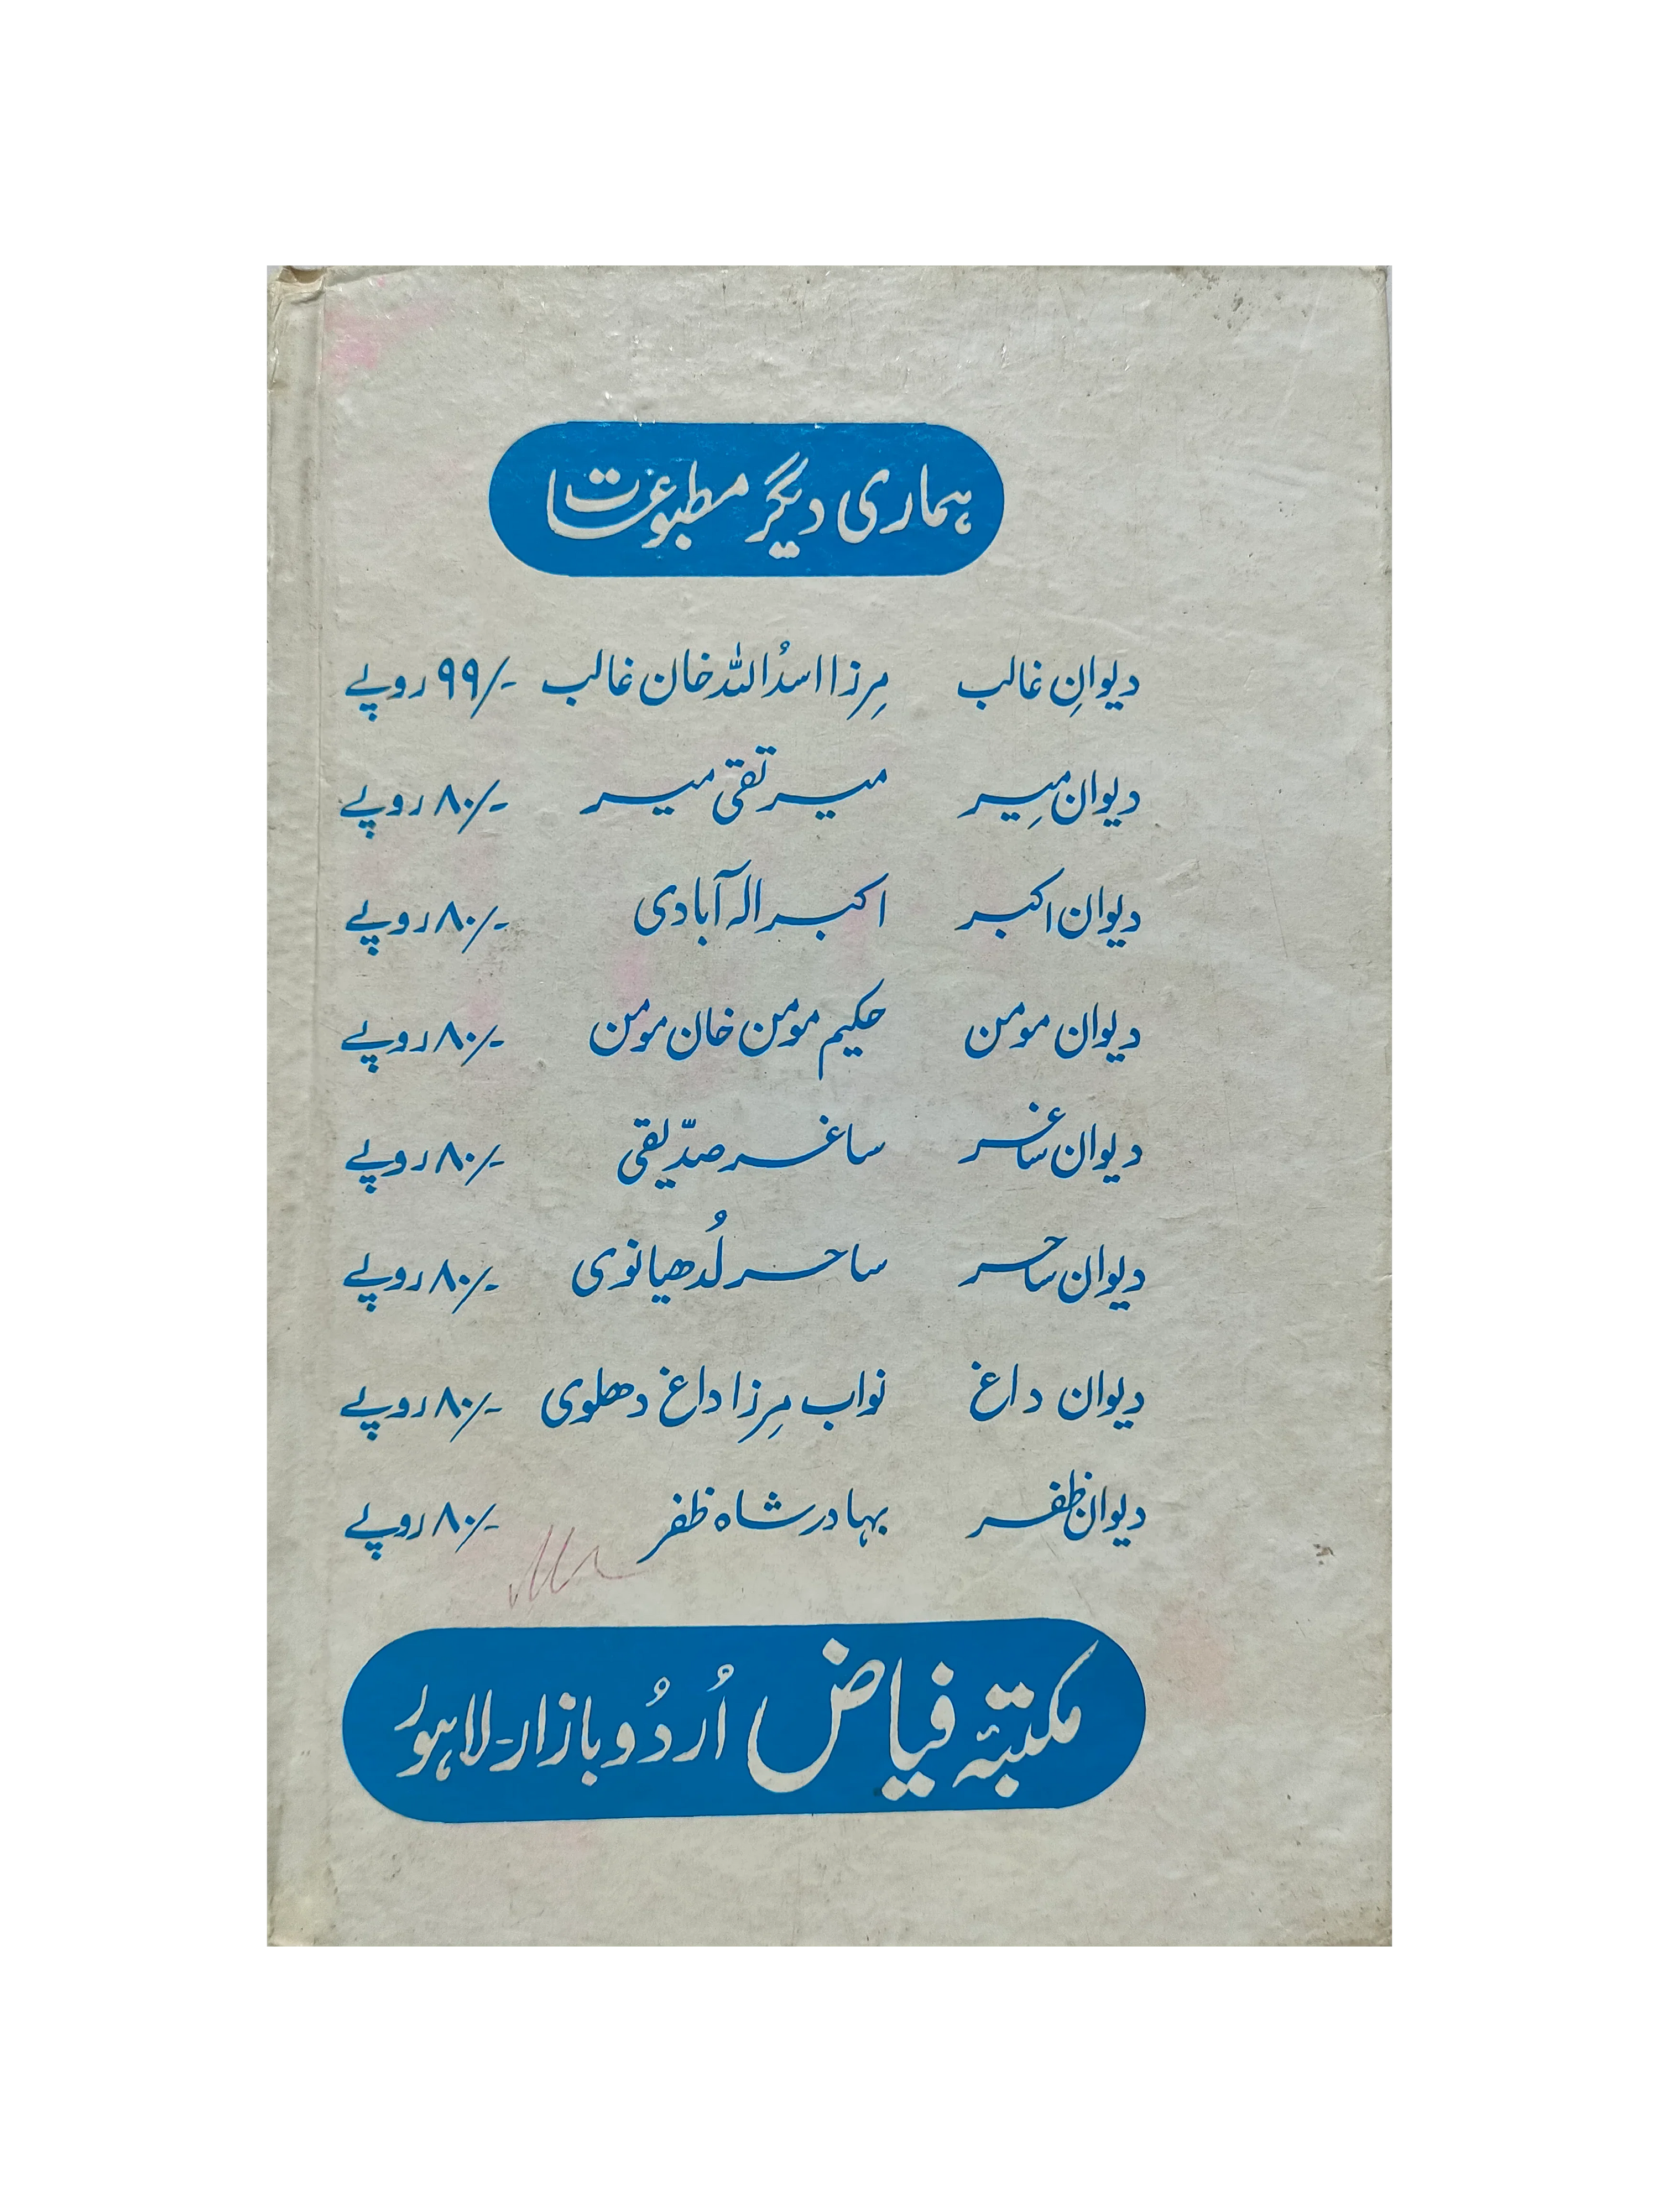 ہماری دیگر مطبوعات
دیوانِ غالب مِرزا اسدُ اللہ خان غالب ۹۹/- روپے
دیوان مِیر میر تقی میر ۸۰/- روپے
دیوان اکبر اکبر الہ آبادی ۸۰/- روپے
دیوان مومن حکیم مومن خان مومن ۸۰/- روپے
دیوان ساغر ساغر صدّیقی ۸۰/- روپے
دیوان ساحر ساحر لُدھیانوی ۸۰/- روپے
دیوان داغ نواب مِرزا داغ دھلوی ۸۰/- روپے
دیوان ظفر بہادر شاہ ظفر ۸۰/- روپے
مکتبۂ فیاض اُردُو بازار-لاہور